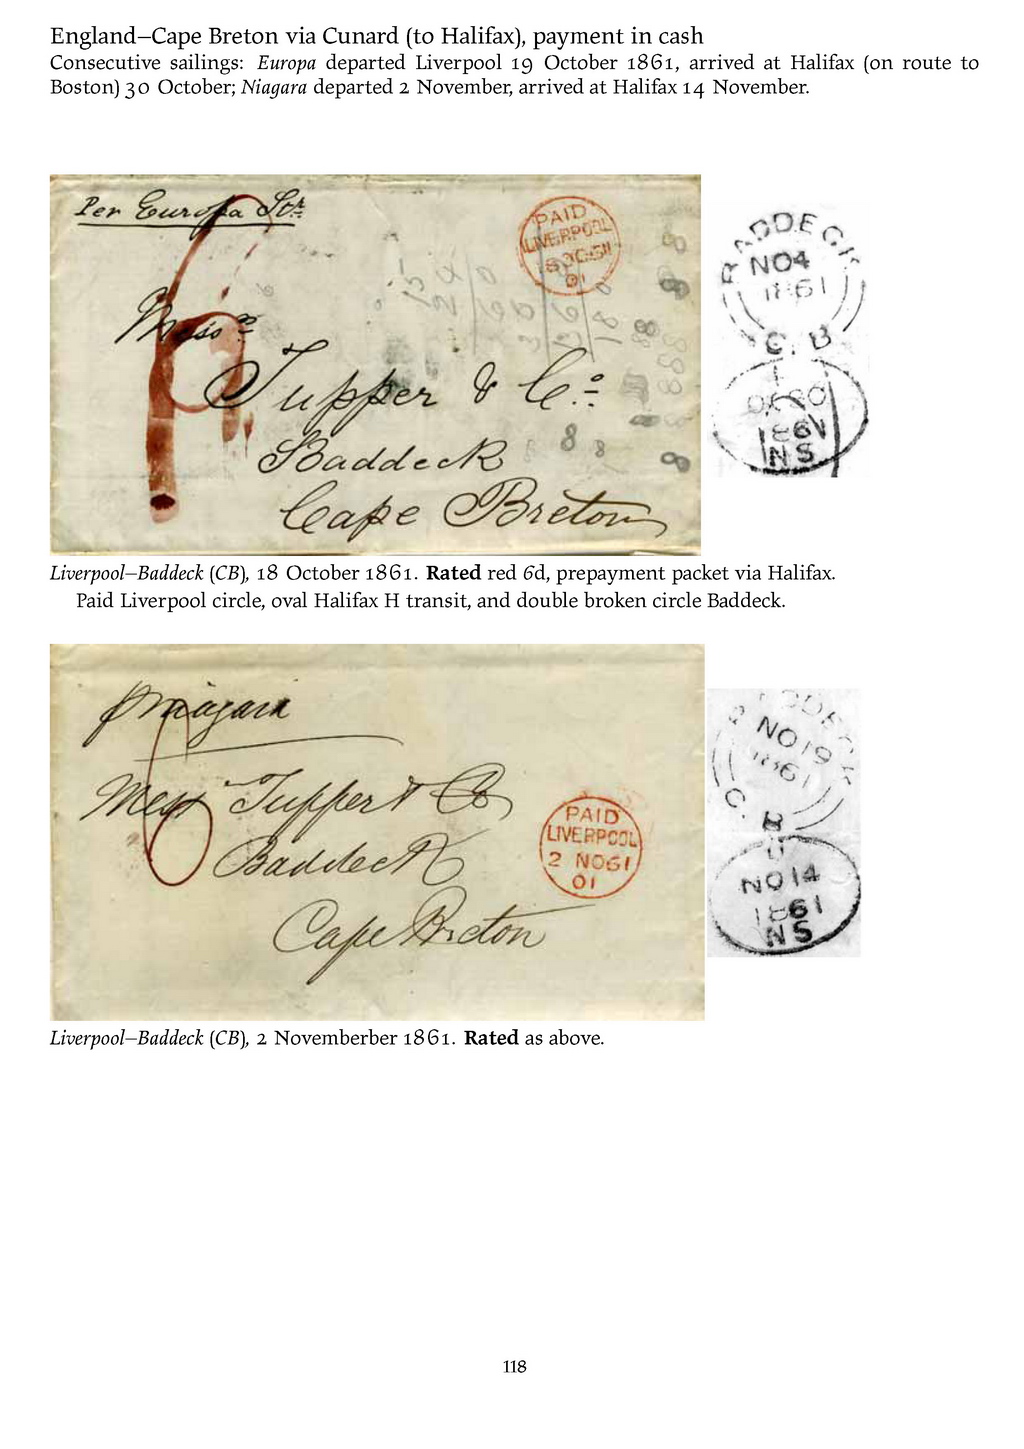 England–Cape Breton via Cunard (to Halifax), payment in cash
Consecutive sailings: Europa departed Liverpool 19 October 1861, arrived at Halifax (on route to
Boston) 30 October; Niagara departed 2 November, arrived at Halifax 14 November.
Per Europa Str.
PAID
LIVERPOOL
Messrs
Tupper & Co.
Baddeck
Cape Breton
BADDECK
NO 4
1861
C. B
1861
NS
Liverpool–Baddeck (CB), 18 October 1861. Rated red 6d, prepayment packet via Halifax.
Paid Liverpool circle, oval Halifax H transit, and double broken circle Baddeck.
p Niagara
Mess Tupper & Co
Baddeck
Cape Breton
PAID
LIVERPOOL
2 NO 61
01
NO 19
1861
C. B
NO 14
1861
NS
Liverpool–Baddeck (CB), 2 Novemberber 1861. Rated as above.
118